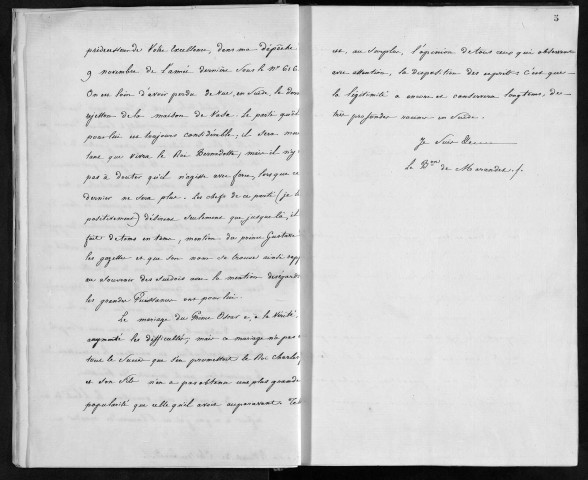 prédécesseur de Votre Excellence, dans ma dépêche
9 novembre de l'année dernière sous le N° 616
On est loin d'avoir perdu de vue, en Suède, le
rejetton de la maison de Vasa. Le parti qu'il
pour lui est toujours considérable; il sera
tant que vivra le Roi Bernadotte; mais il n'y
pas à douter qu'il n'agisse avec force, lorsque ce
dernier ne sera plus. Les chefs de ce parti (je le
positivement) désirent seulement que jusque là, il
fait de tems en tems, mention du prince Gustave
les gazettes et que son nom se trouve ainsi
au souvenir des Suédois avec la mention des égards
les grandes Puissances ont pour lui.
Le mariage du Prince Oscar a, à la vérité,
augmenté les difficultés; mais ce mariage n'a pas
tout le succès que s'en promettait le Roi Charles,
et son fils n'en a pas obtenu une plus grande
popularité que celle qu'il avait auparavant. Telle
3
est, au surplus, l'opinion de tous ceux qui observent
avec attention, la disposition des esprits: c'est que
la légitimité a encore et conservera longtems, de
très profondes racines en Suède.
Je suis &
Le Bon de Marandet /.